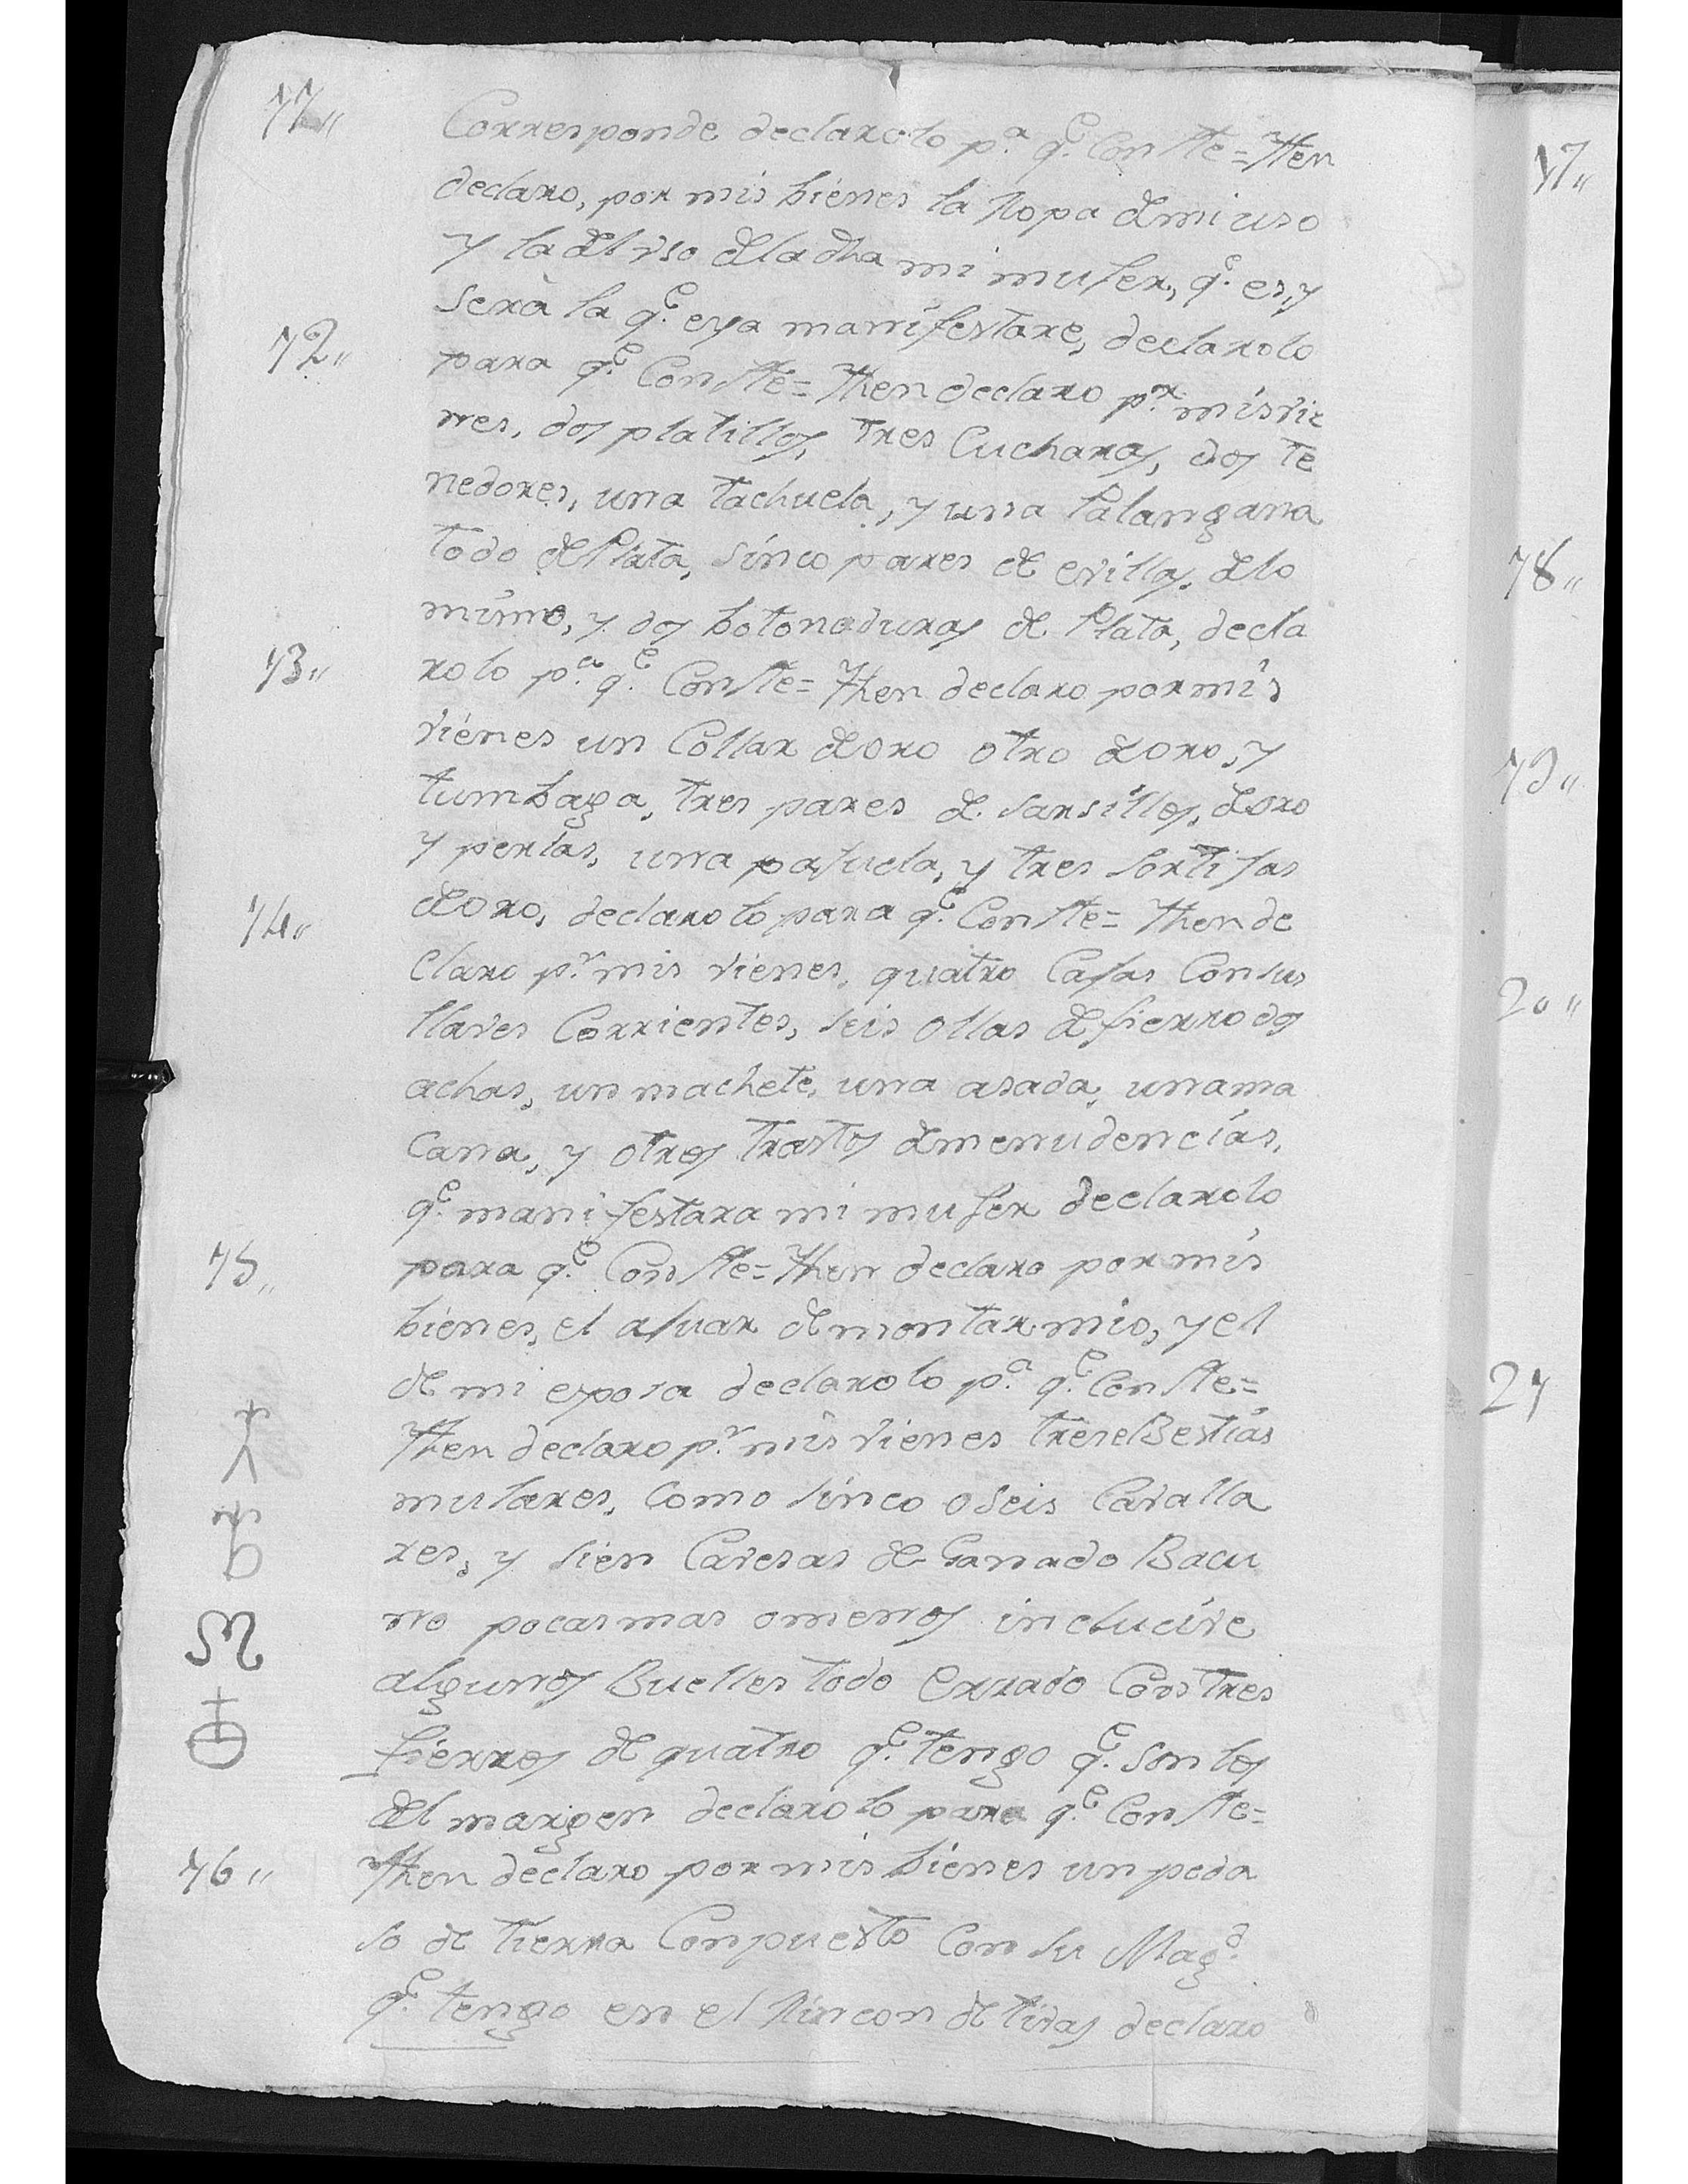 11,, Corresponde declarolo p.a q.e Conste = Yten
declaro, por mis bienes la Ropa de mi uso
y la del vso de la dha mi muger, q.e es, y
serà la q.e eya manifestare, declarolo
12,, para q.e Conste = Yten declaro p.r mis vie
nes, dos platillos, tres Cucharas, dos te
nedores, una tachuela, y una Palangana
todo de Plata, sinco pares de evillas, de lo
mismo, y dos botonaduras de Plata, decla
13,, rolo p.a q.e Conste = Yten declaro por mis
vienes un Collar de oro otro de oro, y
tumbaga, tres pares de sarsillos, de oro
y perlas, una pajuela, y tres sortijas
14,, de oro, declarolo para q.e Conste = Yten de
claro p.r mis vienes, quatro Cajas Con sus
llaves Corrientes, seis ollas de fierro dos
achas, un machete, una asada, una ma
cana, y otros trastos de menudencias,
q.e manifestara mi muger declarolo
15,, para q.e Conste = Yten declaro por mis
bienes, el ajuar de montar mio, y el
de mi esposa declarolo p.a q.e Conste =
Yten declaro p.r mis vienes trese Bestias
mulares, Como sinco o seis Cavalla
res, y sien Cavesas de Ganado Bacu
no pocas mas o menos inclucive
algunos Buelles todo Errado Con tres
fierros de quatro q.e tengo q.e son los
del margen declarolo para q.e Conste =
16,, Yten declaro por mis bienes un peda
so de tierra Conpuesto Con su Mag.d
q.e tengo en el Rincon de tivas declaro
17,,
18,,
19,,
20,,
21